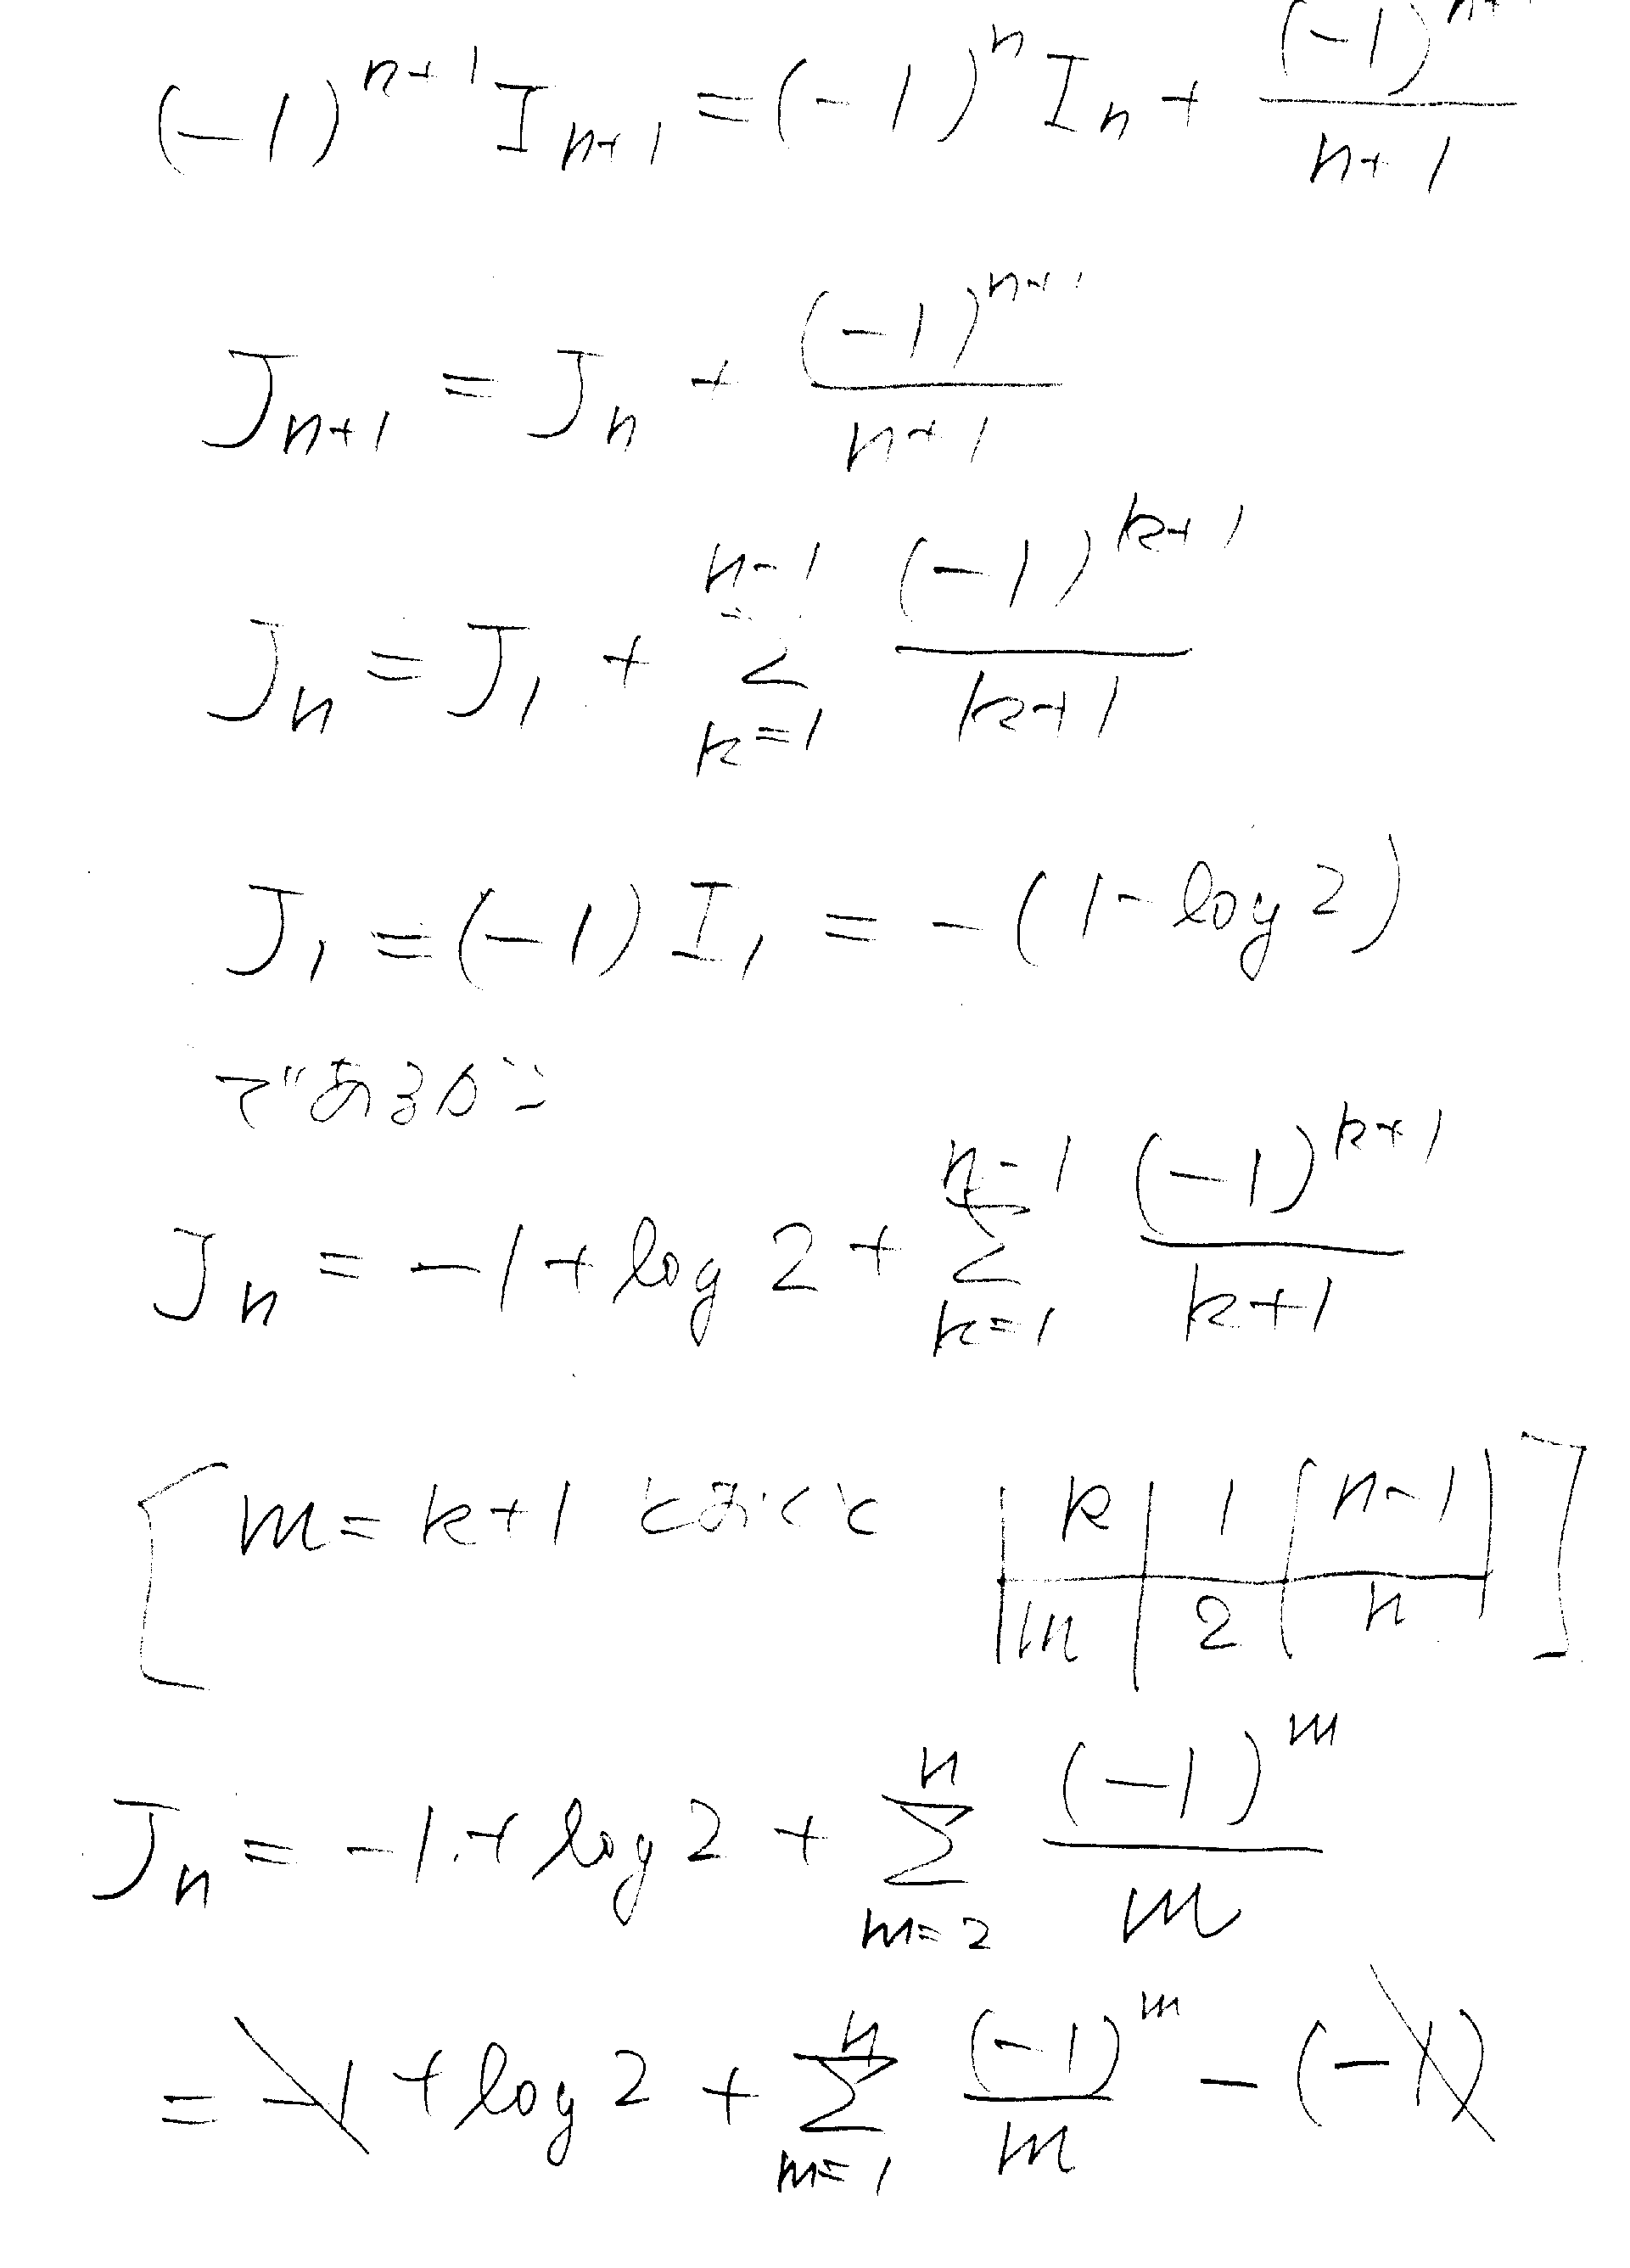 (-1)^{n+1} I_{n+1} = (-1)^n I_n + \frac{(-1)^{n+1}}{n+1}
J_{n+1} = J_n + \frac{(-1)^{n+1}}{n+1}
J_n = J_1 + \sum_{k=1}^{n-1} \frac{(-1)^{k+1}}{k+1}
J_1 = (-1) I_1 = -(1 - log 2)
であるから
J_n = -1 + log 2 + \sum_{k=1}^{n-1} \frac{(-1)^{k+1}}{k+1}
[ m = k+1 とおくと | k | 1 | n-1 | ]
| m | 2 | n |
J_n = -1 + log 2 + \sum_{m=2}^{n} \frac{(-1)^m}{m}
= -1 + log 2 + \sum_{m=1}^{n} \frac{(-1)^m}{m} - (-1)